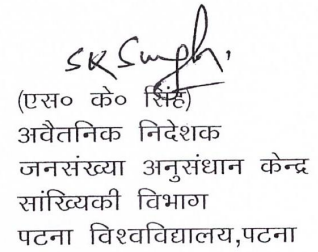 SK Singh.
(एस० के० सिंह)
अवैतनिक निदेशक
जनसंख्या अनुसंधान केन्द्र
सांख्यिकी विभाग
पटना विश्वविद्यालय,पटना